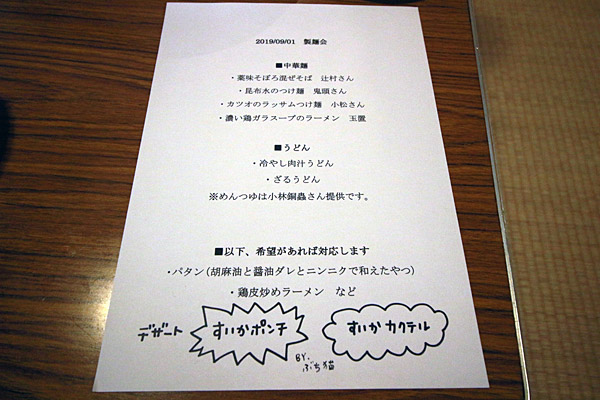 2019/09/01 製麺会
■中華麺
・薬味そぼろ混ぜそば 辻村さん
・昆布水のつけ麺 鬼頭さん
・カツオのラッサムつけ麺 小松さん
・濃い鶏ガラスープのラーメン 玉置
■うどん
・冷やし肉汁うどん
・ざるうどん
※めんつゆは小林銅蟲さん提供です。
■以下、希望があれば対応します
・バタン(胡麻油と醤油ダレとニンニクで和えたやつ)
・鶏皮炒めラーメン など
デザート すいかポンチ すいかカクテル
BY.
ぶち猫